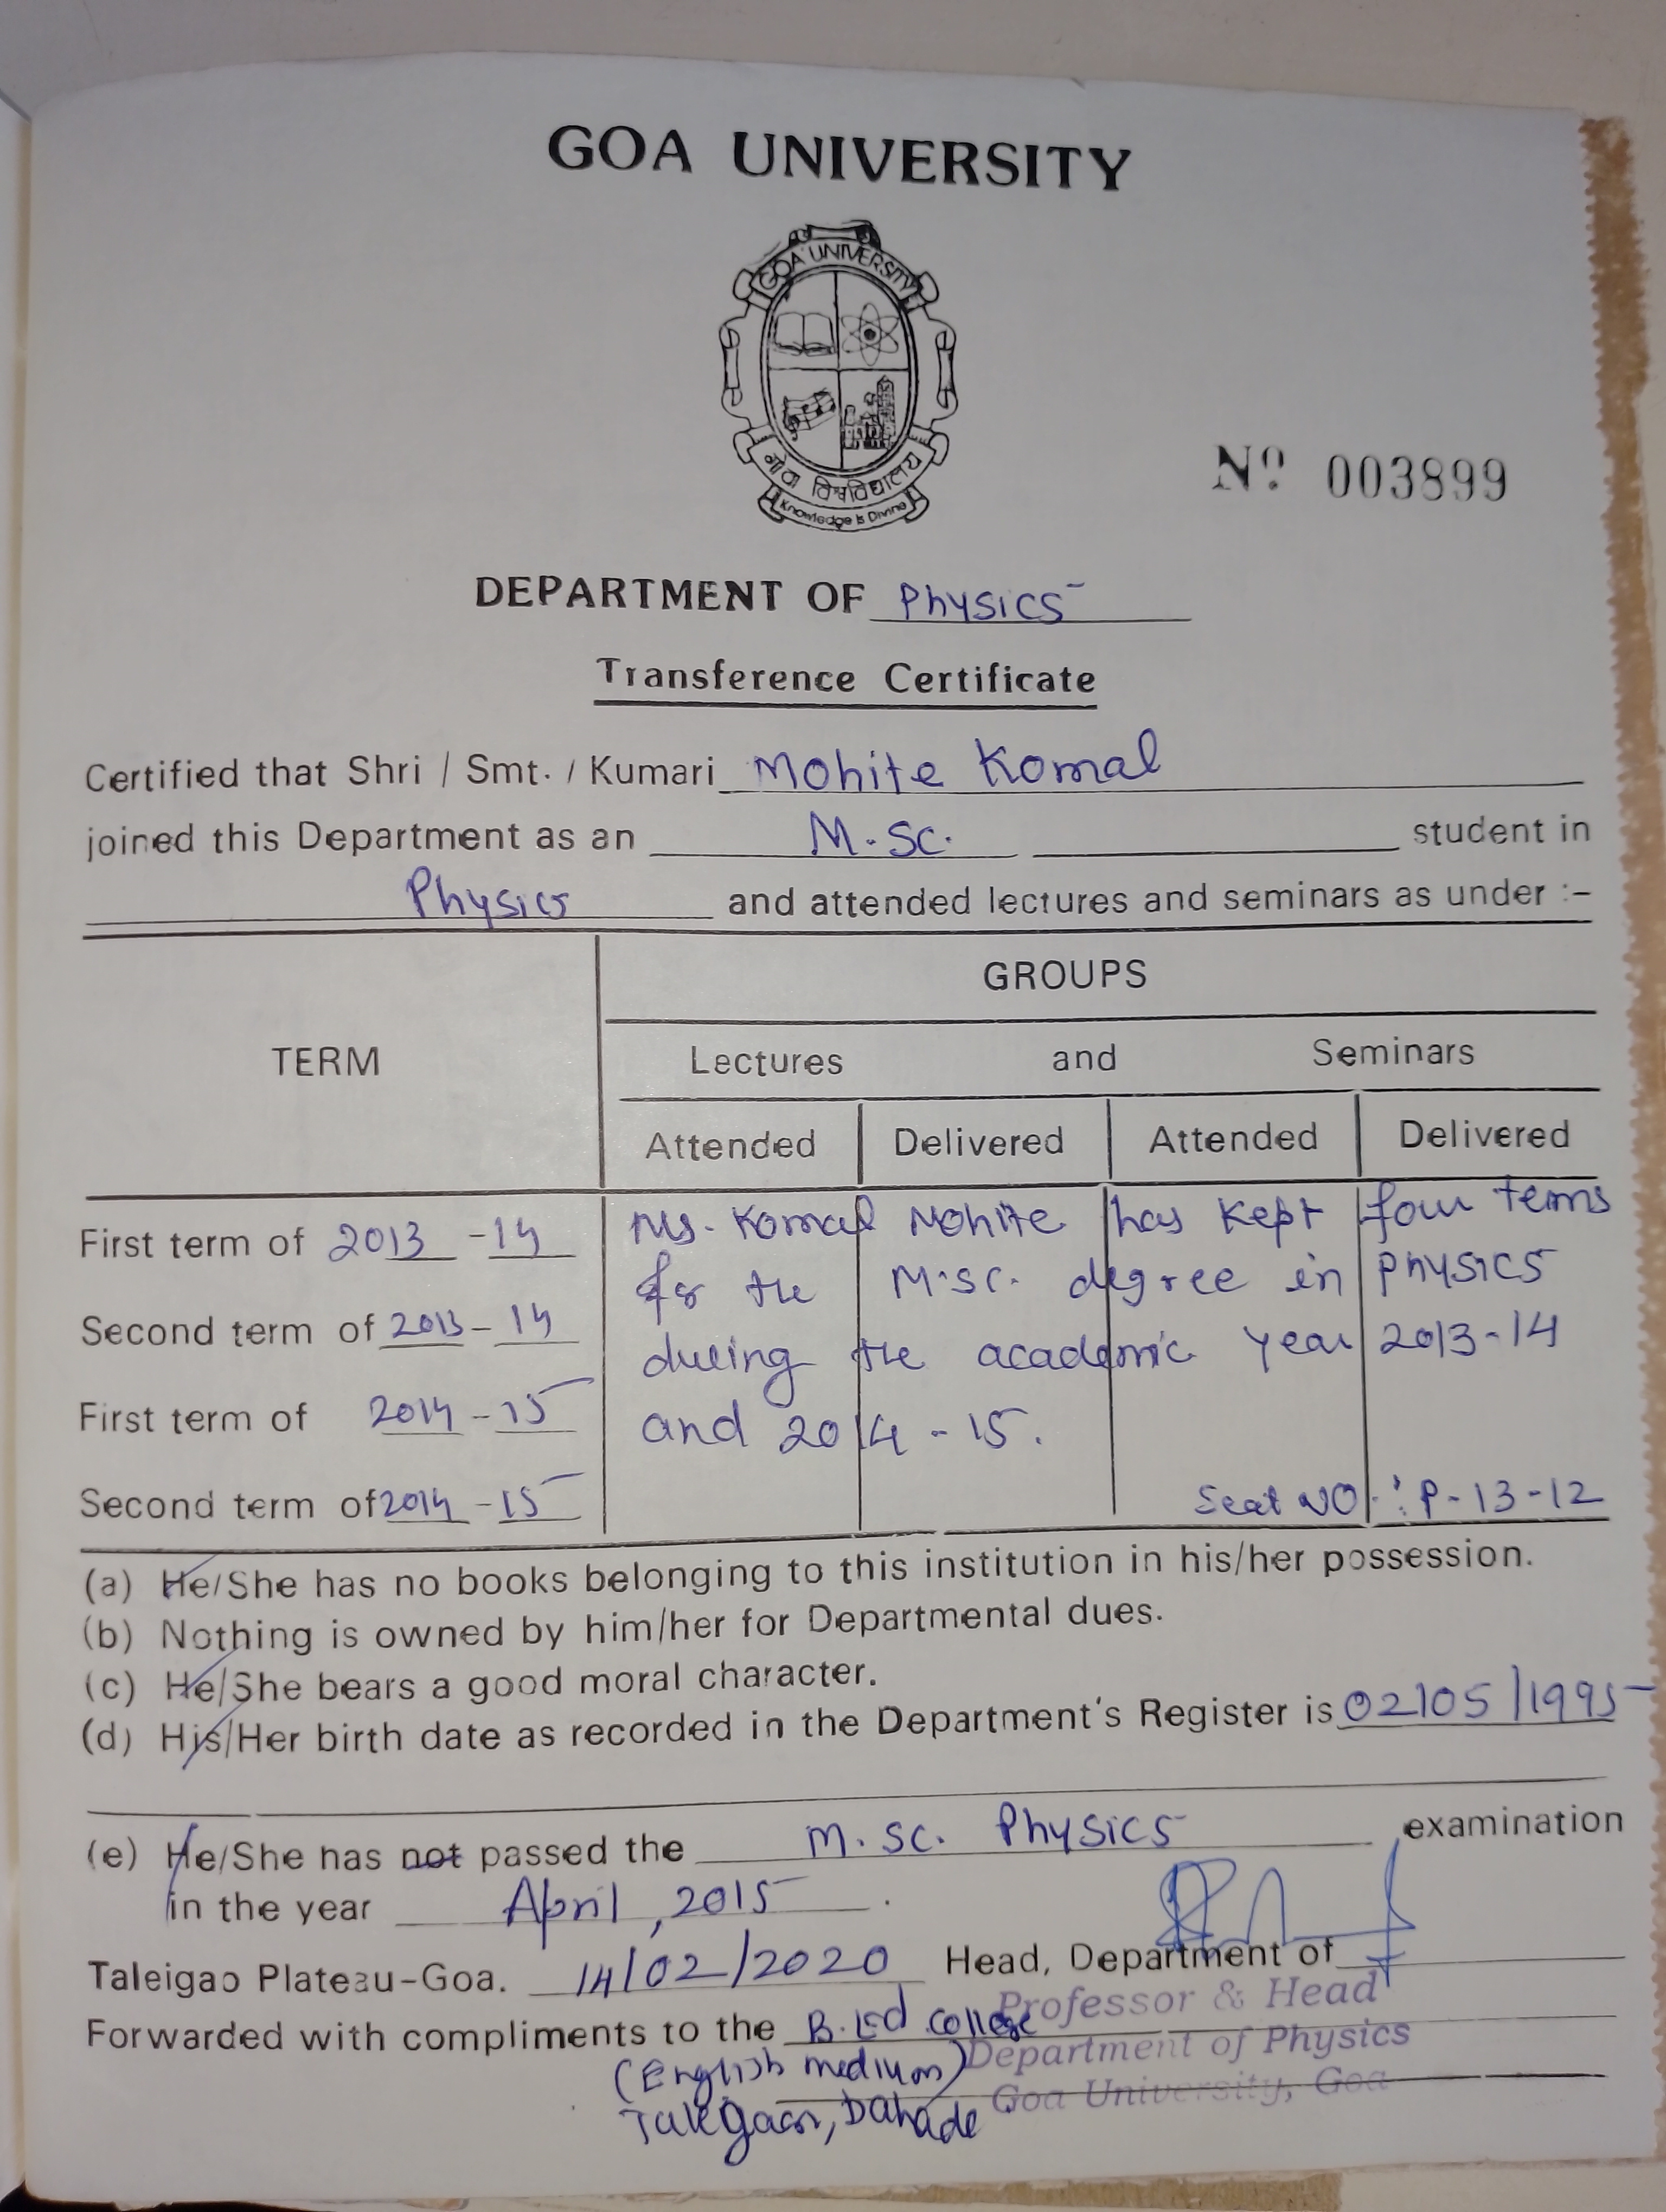 GOA UNIVERSITY
GOA UNIVERSITY
गोवा विश्वविद्यालय
Knowledge is Divine
Nº 003899
DEPARTMENT OF Physics
Transference Certificate
Certified that Shri / Smt. / Kumari Mohite Komal
joined this Department as an M.Sc. student in
Physics and attended lectures and seminars as under :-
GROUPS
TERM Lectures and Seminars
Attended Delivered Attended Delivered
First term of 2013 - 14 Ms. Komal Mohite has kept four terms
for the M.Sc. degree in Physics
Second term of 2013 - 14 during the academic year 2013-14
First term of 2014 - 15 and 2014 - 15.
Second term of 2014 - 15 Seat No. : P-13-12
(a) He/She has no books belonging to this institution in his/her possession.
(b) Nothing is owned by him/her for Departmental dues.
(c) He/She bears a good moral character.
(d) His/Her birth date as recorded in the Department's Register is 02/05/1995
(e) He/She has not passed the M.Sc. Physics examination
in the year April, 2015 .
Taleigao Plateau-Goa. 14/02/2020 Head, Department of
Professor & Head
Forwarded with compliments to the B.Ed College
Department of Physics
(English medium)
Goa University, Goa
Talegaon, Dabhade